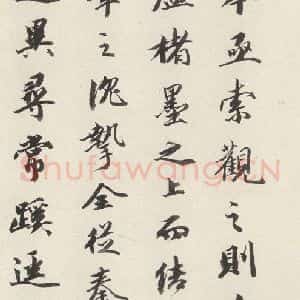 亟索觀之則
楮墨之上而結
之瑰摯全從秦
異尋常蹊逕
Shufawang.CN